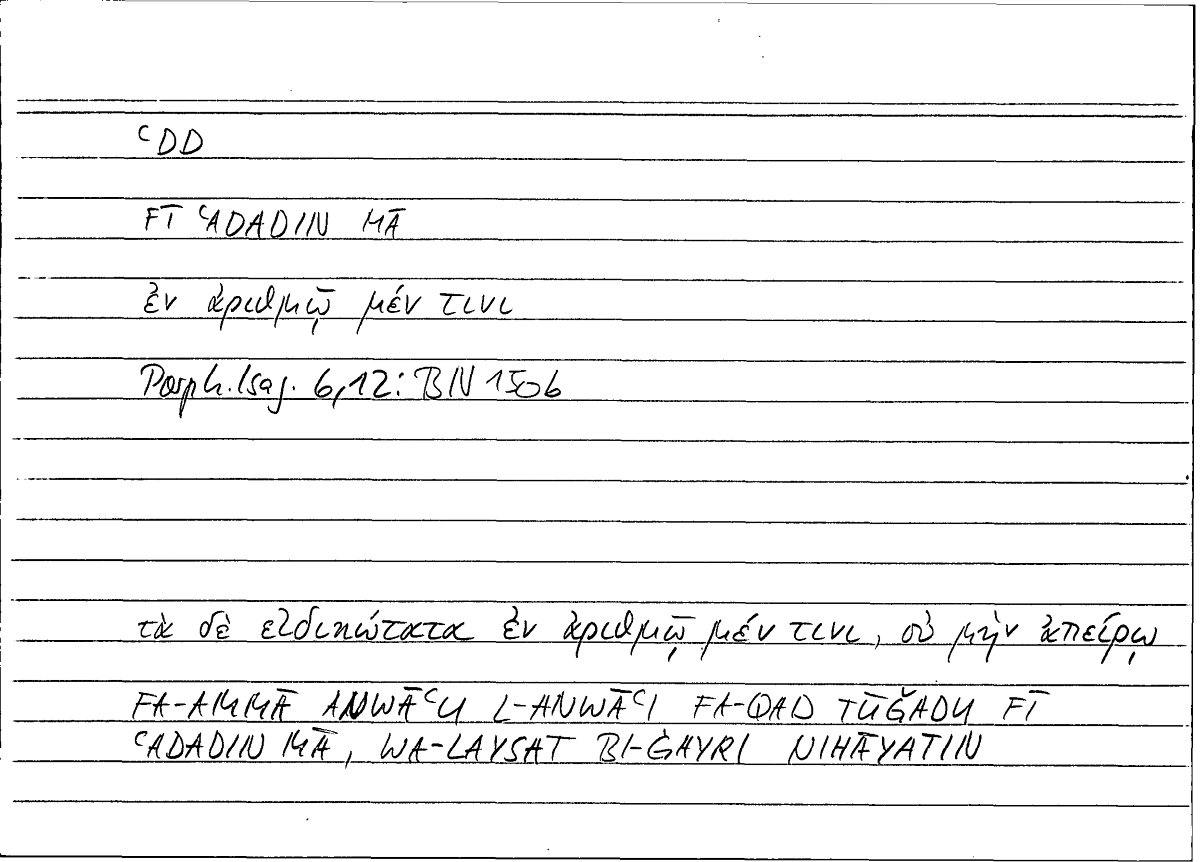 ʿDD
FĪ ʿADADIN MĀ
ἐν ἀριθμῷ μέν τινι
Porph. Isag. 6,12: BN 150b
τὰ δὲ εἰδικώτατα ἐν ἀριθμῷ μέν τινι, οὐ μὴν ἀπείρῳ
FA-AMMĀ ANWĀʿU L-ANWĀʿI FA-QAD TŪǦADU FĪ
ʿADADIN MĀ, WA-LAYSAT BI-ĠAYRI NIHĀYATIN